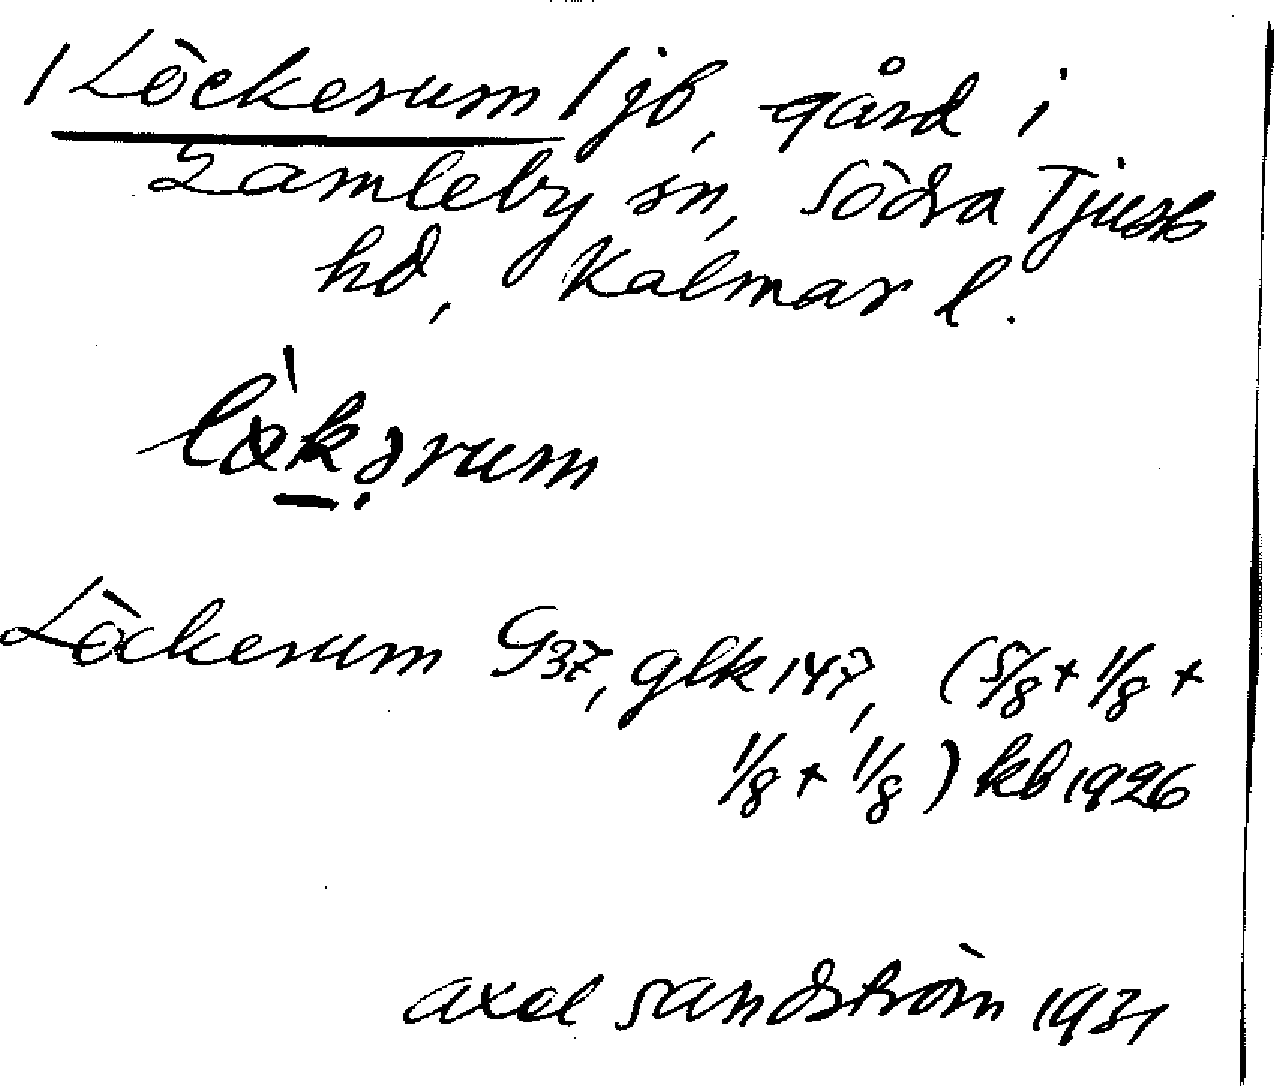 /Löckerum/ jb, gård i
Gamleby sn, Södra Tjusts
hd, Kalmar l.
lø̀kərum
Löckerum G37, glk 147, (5/8 + 1/8 +
1/8 + 1/8) kb 1926
Axel Sandström 1931